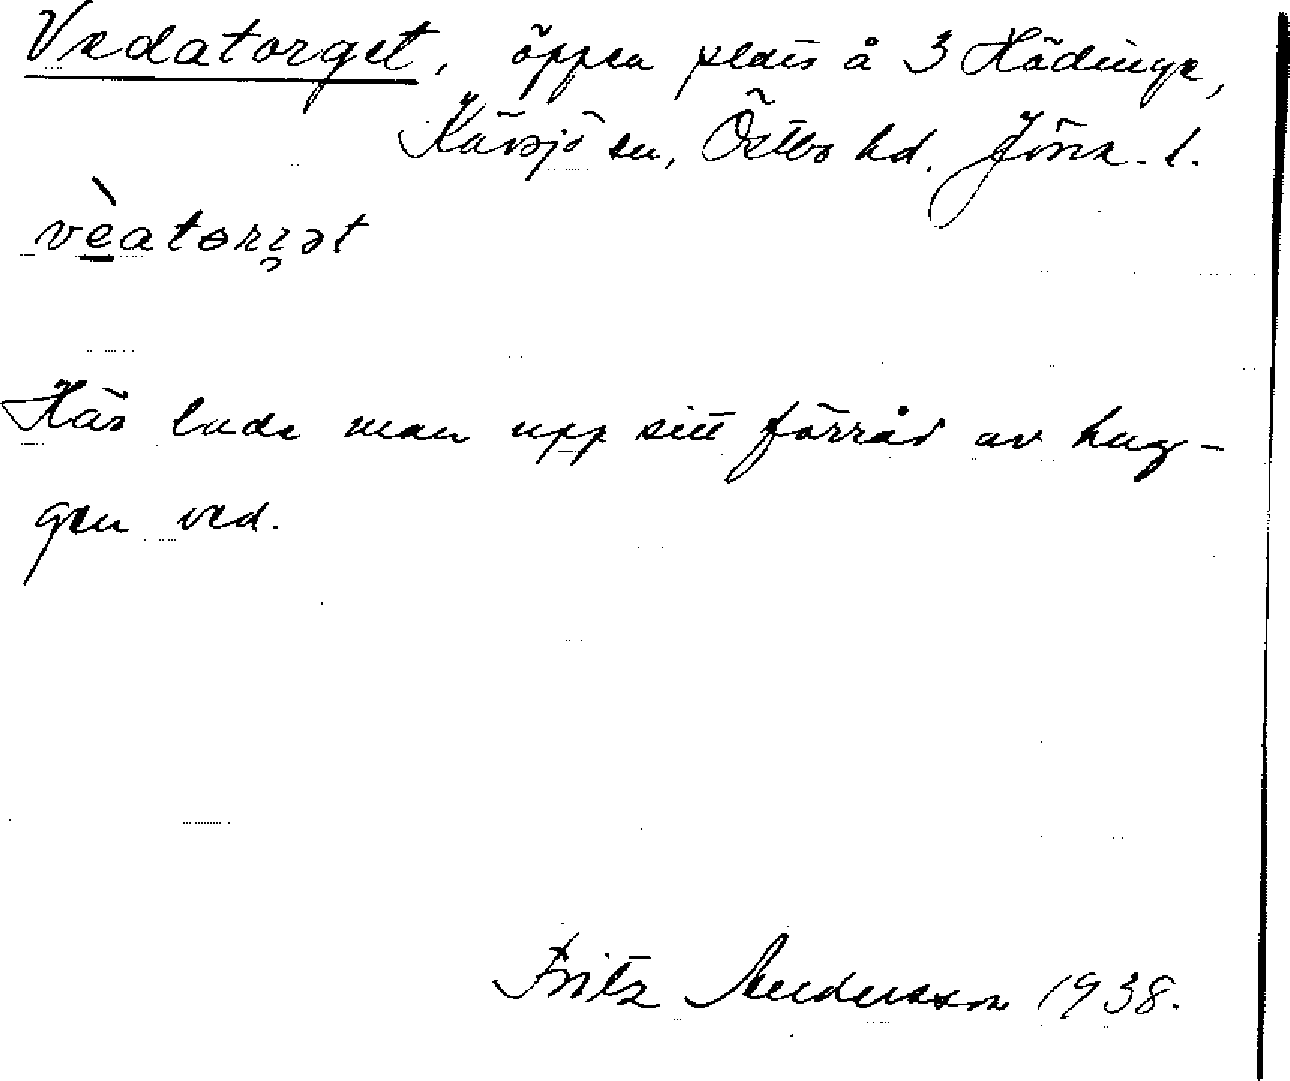 Vedatorget, öppen plats å 3 Hädinge,
Kävsjö sn, Östbo hd. Jönk. l.
vèatorʒət
Här lade man upp sitt förråd av hug-
gen ved.
Fritz Andersson 1938.